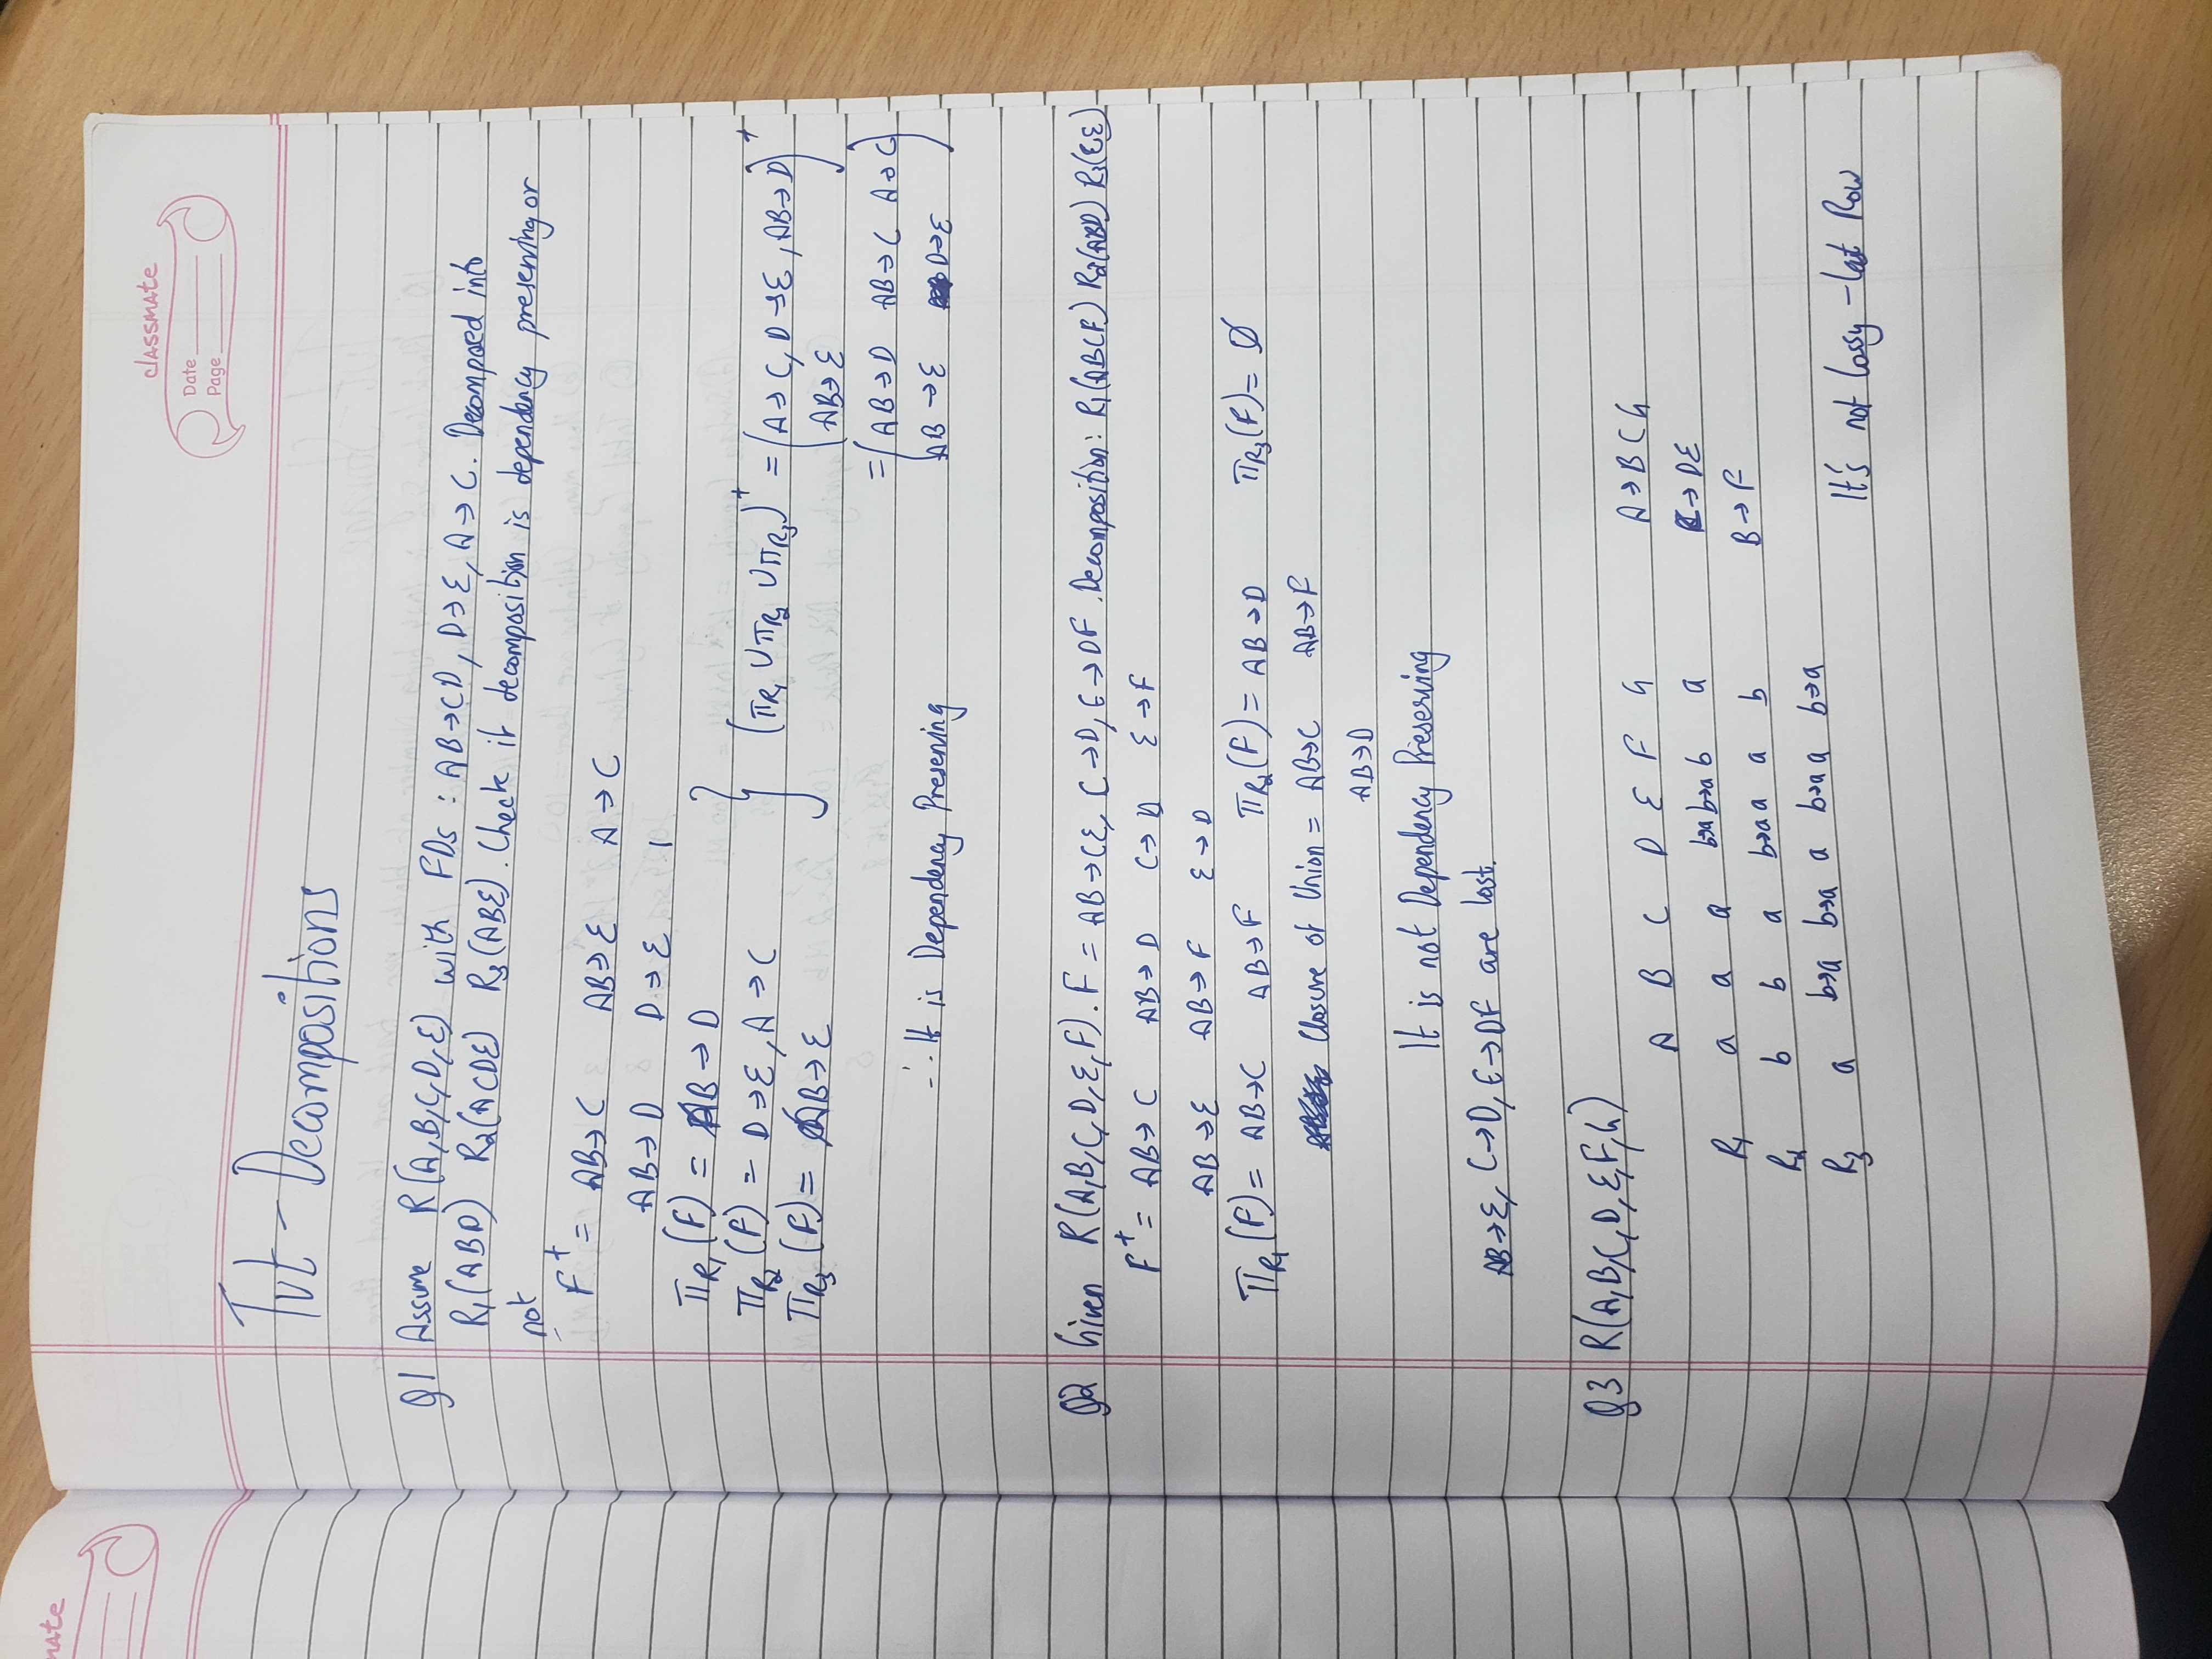 mate
classmate
Date
Page
Tut - Decompositions
Q1 Assume R(A,B,C,D,E) with FDs : AB→CD, D→E, A→C. Decomposed into
R₁(ABD) R₂(ACDE) R₃(ABE). Check if decomposition is dependency preserving or
not
F⁺ = AB→C AB→E A→C
AB→D D→E
π_R₁(F) = AB→D
π_R₂(F) = D→E, A→C
π_R₃(F) = AB→E
(π_R₁ ∪ π_R₂ ∪ π_R₃)⁺ = (A→C, D→E, AB→D
AB→E)⁺
= (AB→D AB→C A→C
AB→E D→E)
∴ It is Dependency Preserving
Q2 Given R(A,B,C,D,E,F). F = AB→CE, C→D, E→DF. Decomposition: R₁(ABCF) R₂(ABD) R₃(EE)
F⁺ = AB→C AB→D C→D E→F
AB→E AB→F E→D
π_R₁(F) = AB→C AB→F π_R₂(F) = AB→D π_R₃(F) = Ø
Closure of Union = AB→C AB→F
AB→D
It is not Dependency Preserving
AB→E, C→D, E→DF are lost.
Q3 R(A,B,C,D,E,F,G)
A B C D E F G A→BCG
R₁ a a a b→a b→a b a C→DE
R₂ b b a b→a a a b B→F
R₃ a b→a b→a a b→a a b→a
It's not lossy - last Row